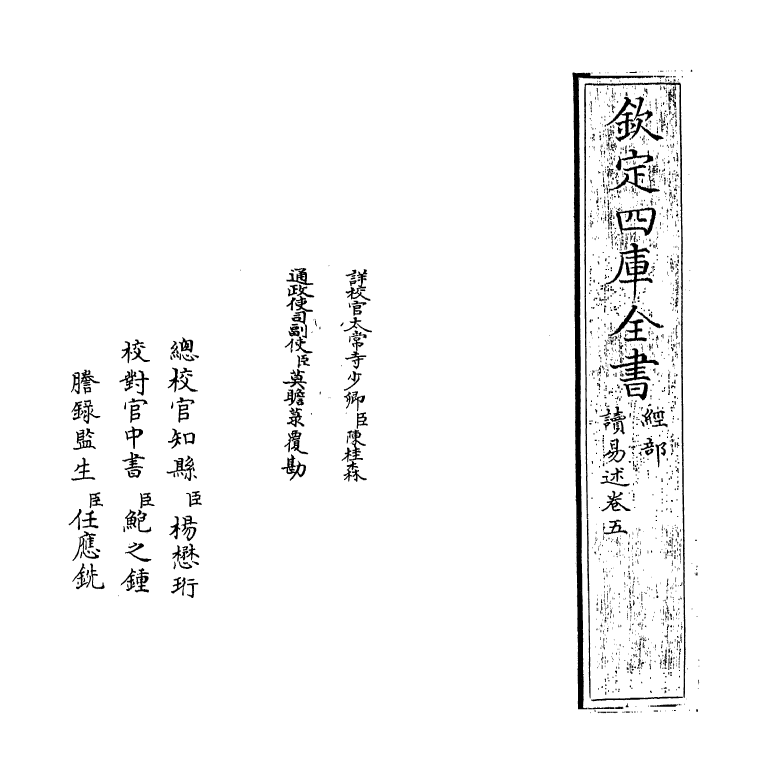 欽定四庫全書
經部
讀易述卷五
詳校官太常寺少卿臣陳桂森
通政使司副使臣莫瞻菉覆勘
總校官知縣臣楊懋珩
校對官中書臣鮑之鍾
謄錄監生臣任應銑